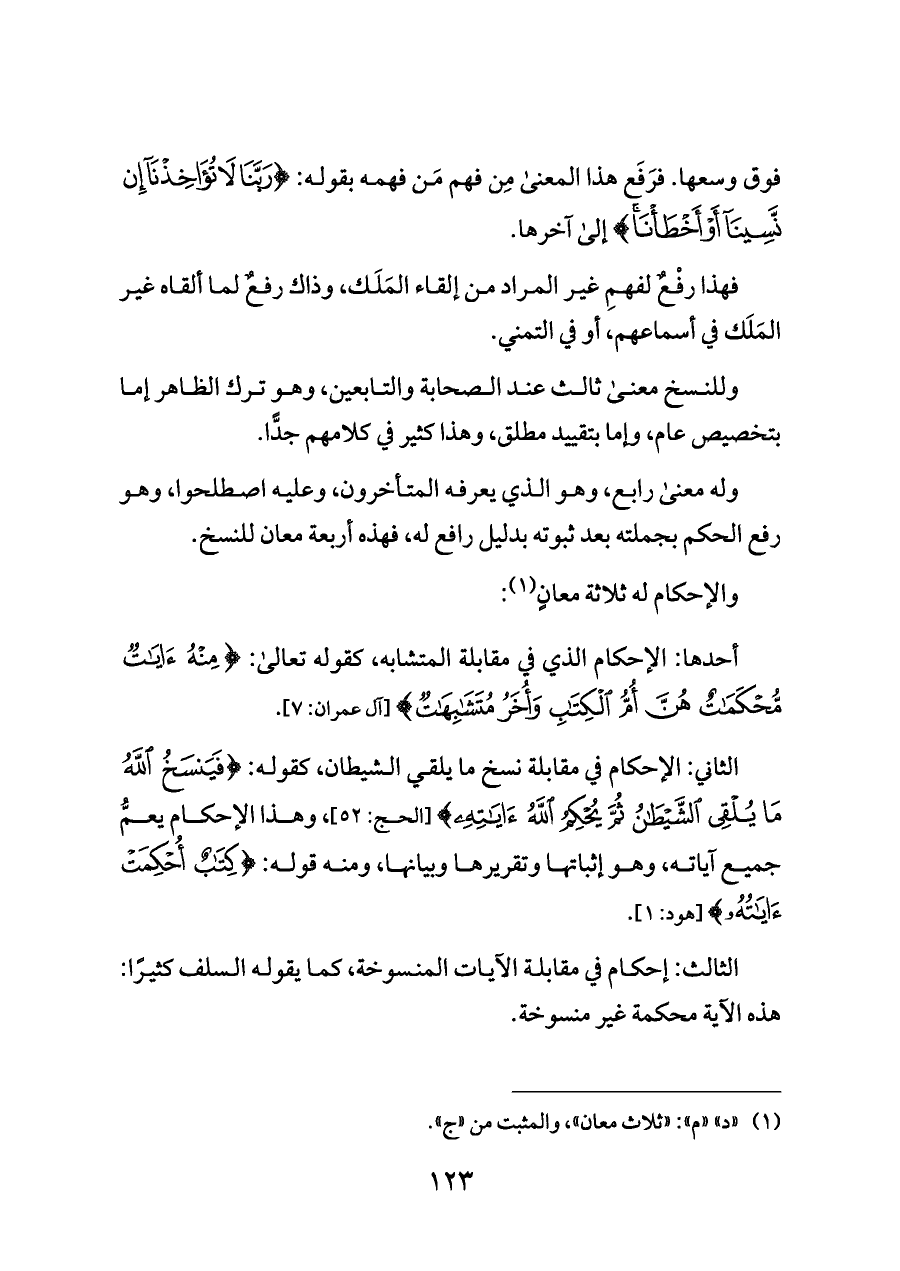 فوق وسعها. فرَفَع هذا المعنىٰ مِن فهم مَن فهمه بقوله: ﴿رَبَّنَا لَا تُؤَاخِذْنَآ إِن
نَّسِينَآ أَوْ أَخْطَأْنَا ۚ﴾ إلىٰ آخرها.
فهذا رفْعٌ لفهمِ غير المراد من إلقاء المَلَك، وذاك رفعٌ لما ألقاه غير
المَلَك في أسماعهم، أو في التمني.
وللنسخ معنىٰ ثالث عند الصحابة والتابعين، وهو ترك الظاهر إما
بتخصيص عام، وإما بتقييد مطلق، وهذا كثير في كلامهم جدًّا.
وله معنىٰ رابع، وهو الذي يعرفه المتأخرون، وعليه اصطلحوا، وهو
رفع الحكم بجملته بعد ثبوته بدليل رافع له، فهذه أربعة معان للنسخ.
والإحكام له ثلاثة معانٍ(١):
أحدها: الإحكام الذي في مقابلة المتشابه، كقوله تعالىٰ: ﴿مِنْهُ ءَايَٰتٌ
مُّحْكَمَٰتٌ هُنَّ أُمُّ ٱلْكِتَٰبِ وَأُخَرُ مُتَشَٰبِهَٰتٌ﴾ [آل عمران: ٧].
الثاني: الإحكام في مقابلة نسخ ما يلقي الشيطان، كقوله: ﴿فَيَنسَخُ ٱللَّهُ
مَا يُلْقِى ٱلشَّيْطَٰنُ ثُمَّ يُحْكِمُ ٱللَّهُ ءَايَٰتِهِۦ﴾ [الحج: ٥٢]، وهذا الإحكام يعمُّ
جميع آياته، وهو إثباتها وتقريرها وبيانها، ومنه قوله: ﴿كِتَٰبٌ أُحْكِمَتْ
ءَايَٰتُهُۥ﴾ [هود: ١].
الثالث: إحكام في مقابلة الآيات المنسوخة، كما يقوله السلف كثيرًا:
هذه الآية محكمة غير منسوخة.
(١) «د» «م»: «ثلاث معان»، والمثبت من «ج».
١٢٣